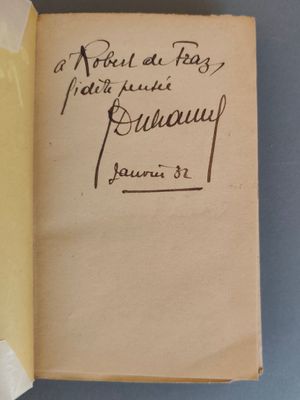 à Robert de Traz,
fidèle pensée
GDuhamel
Janvier 32